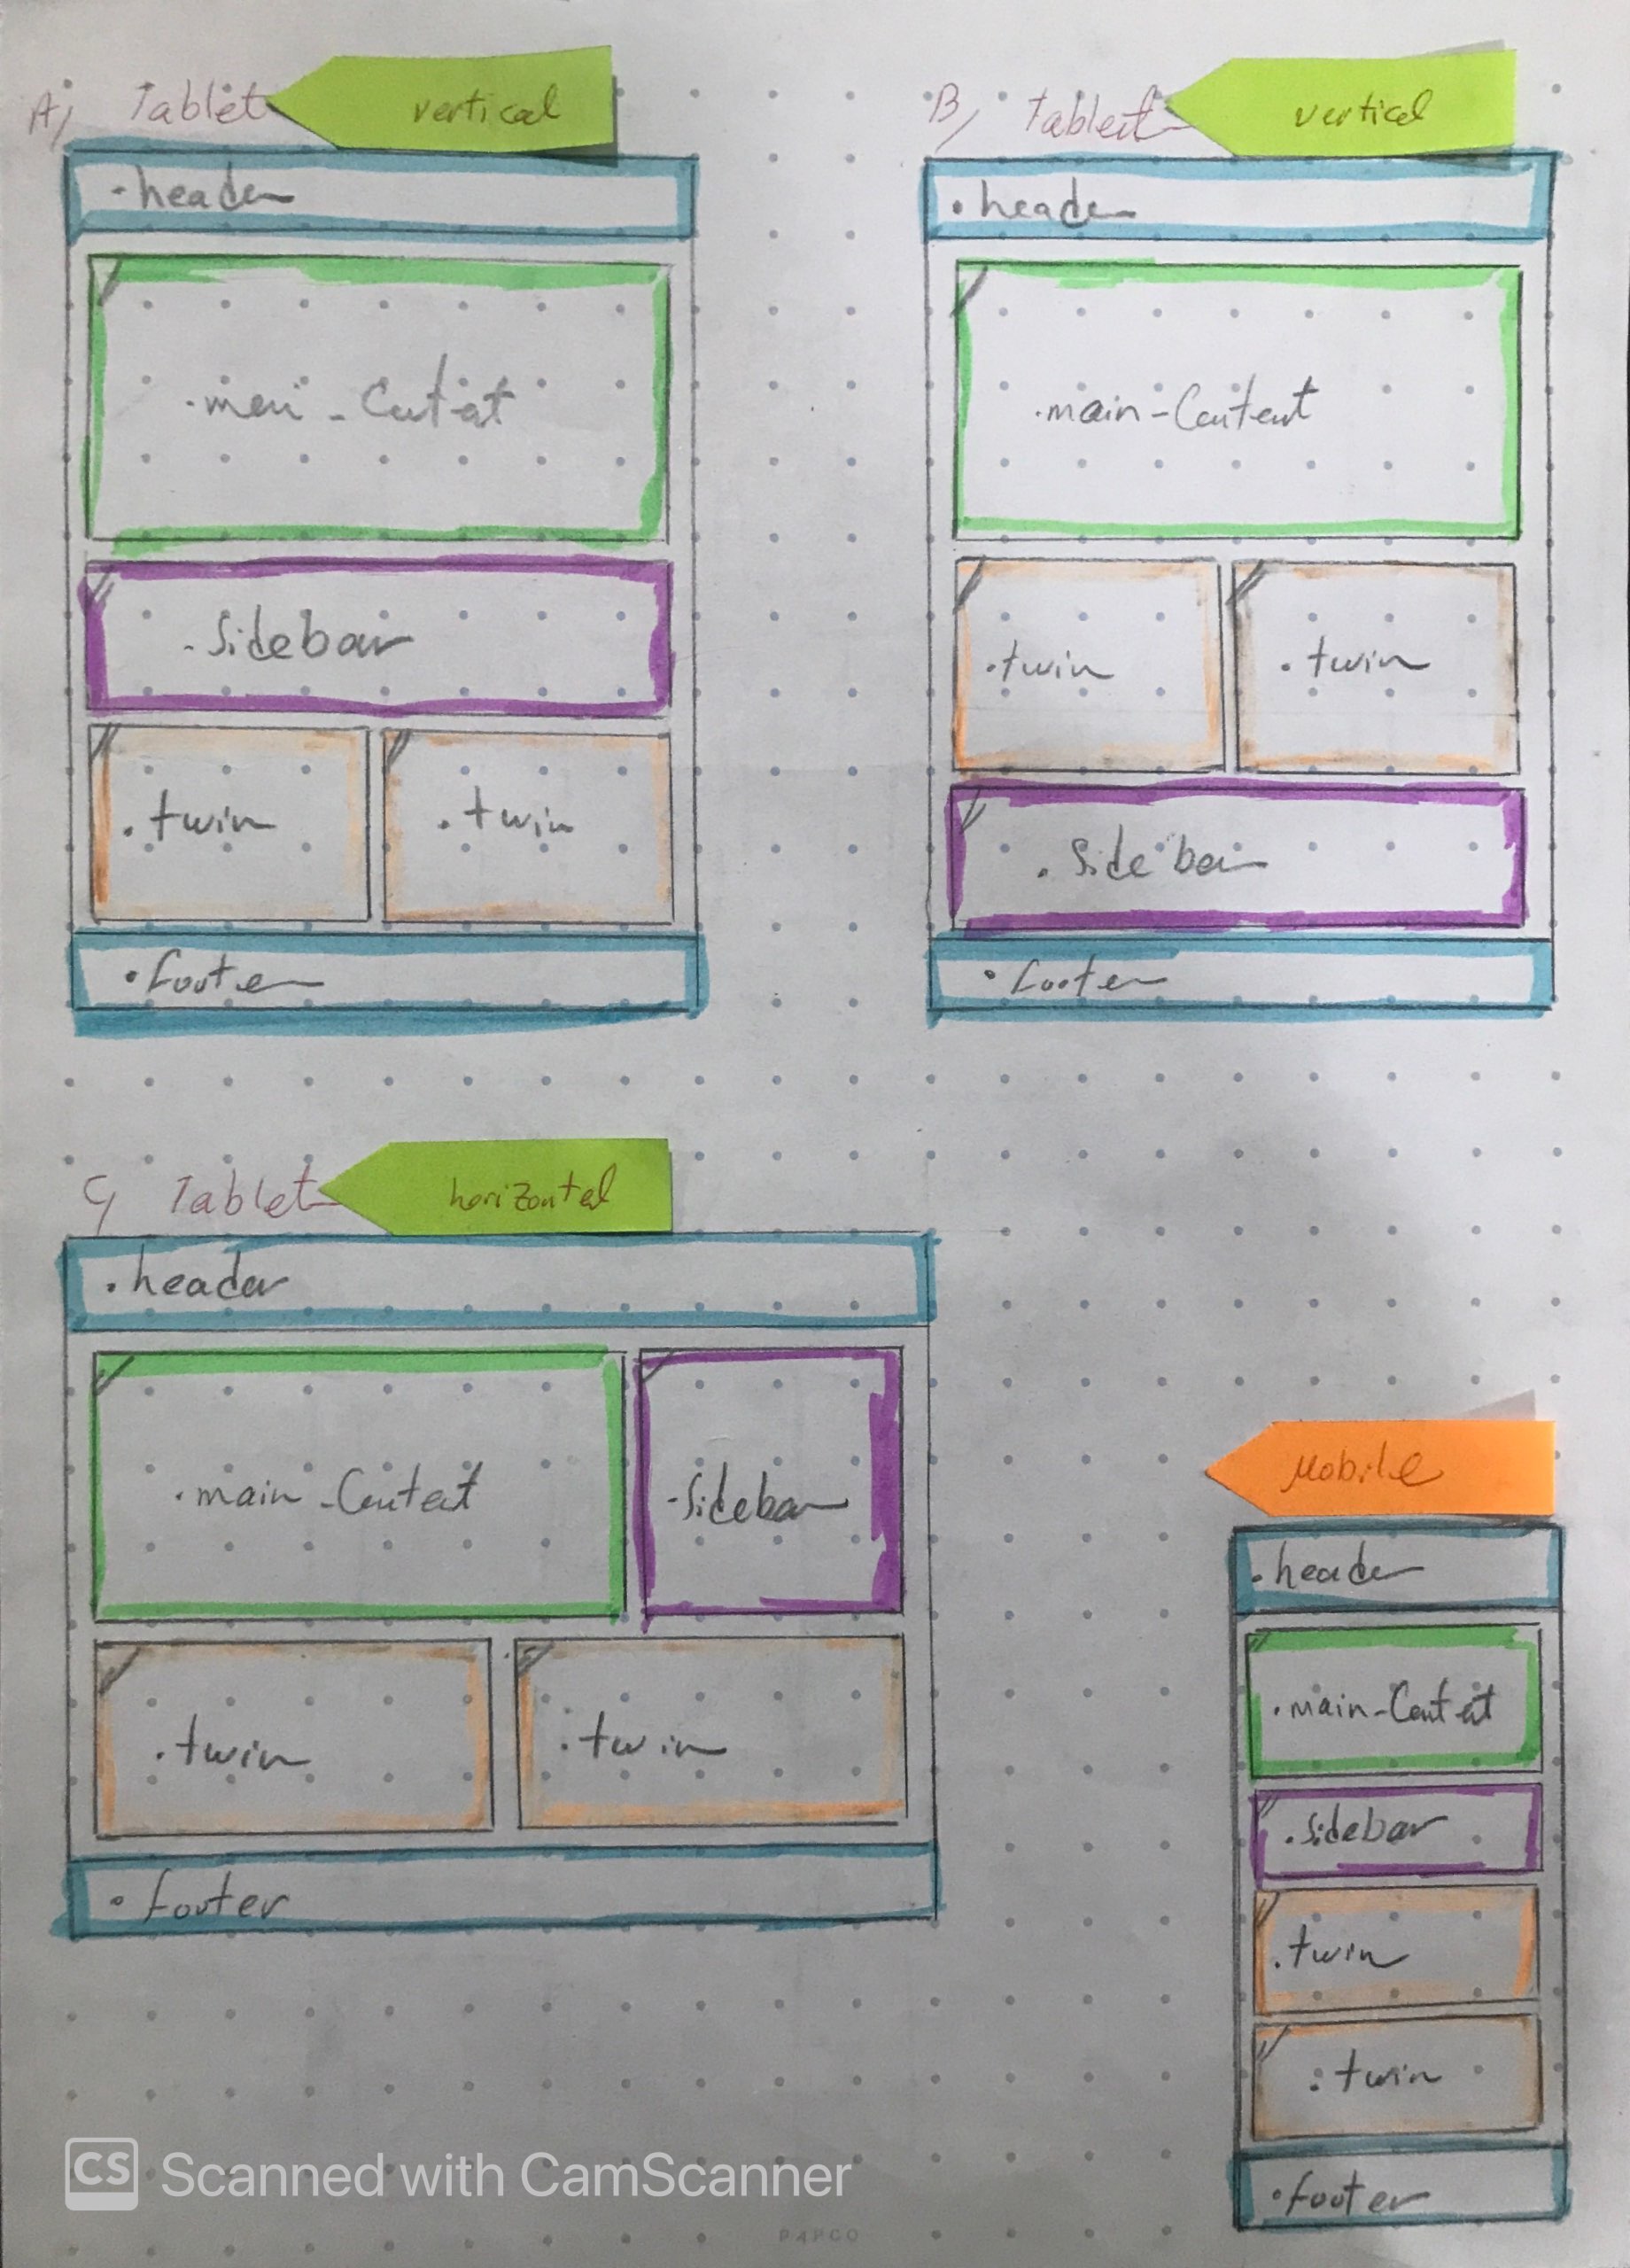 A) Tablet vertical
.header
.main-Content
.Sidebar
.twin .twin
.footer
B) Tablet vertical
.header
.main-Content
.twin .twin
.Sidebar
.footer
C) Tablet horizontal
.header
.main-Content .Sidebar
.twin .twin
.footer
Mobile
.header
.main-Content
.Sidebar
.twin
.twin
.footer
CS Scanned with CamScanner
PAPCO